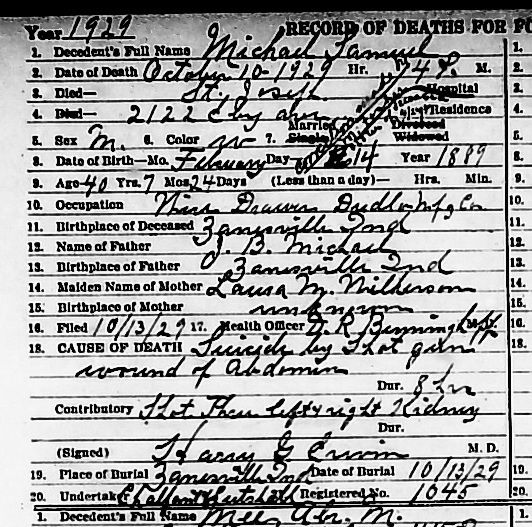 Year 1929 RECORD OF DEATHS FOR
1. Decedent's Full Name Michael Samuel
2. Date of Death October 10-1929 Hr. M.
3. Died— St. Joseph Hospital
4. Died— 2122 Eby ave Residence
5. Sex M. 6. Color w 7. Married Single Divorced Widowed
8. Date of Birth—Mo. February Day 14 Year 1889
9. Age 40 Yrs. 7 Mos. 24 Days (Less than a day)— Hrs. Min.
10. Occupation Wire Drawer Dudlo Mfg Co
11. Birthplace of Deceased Zanesville Ind
12. Name of Father J. B. Michael
13. Birthplace of Father Zanesville Ind
14. Maiden Name of Mother Laura M. Wilkerson
15. Birthplace of Mother unknown
16. Filed 10/13/29 17. Health Officer M.D.
18. CAUSE OF DEATH Suicide by Shot gun
wound of Abdomin
Dur. 8 hrs
Contributory Shot Thru left & right Kidney
Dur.
(Signed) Harry G Erwin M. D.
19. Place of Burial Zanesville Ind Date of Burial 10/13/29
20. Undertaker Registered No. 1045
1. Decedent's Full Name